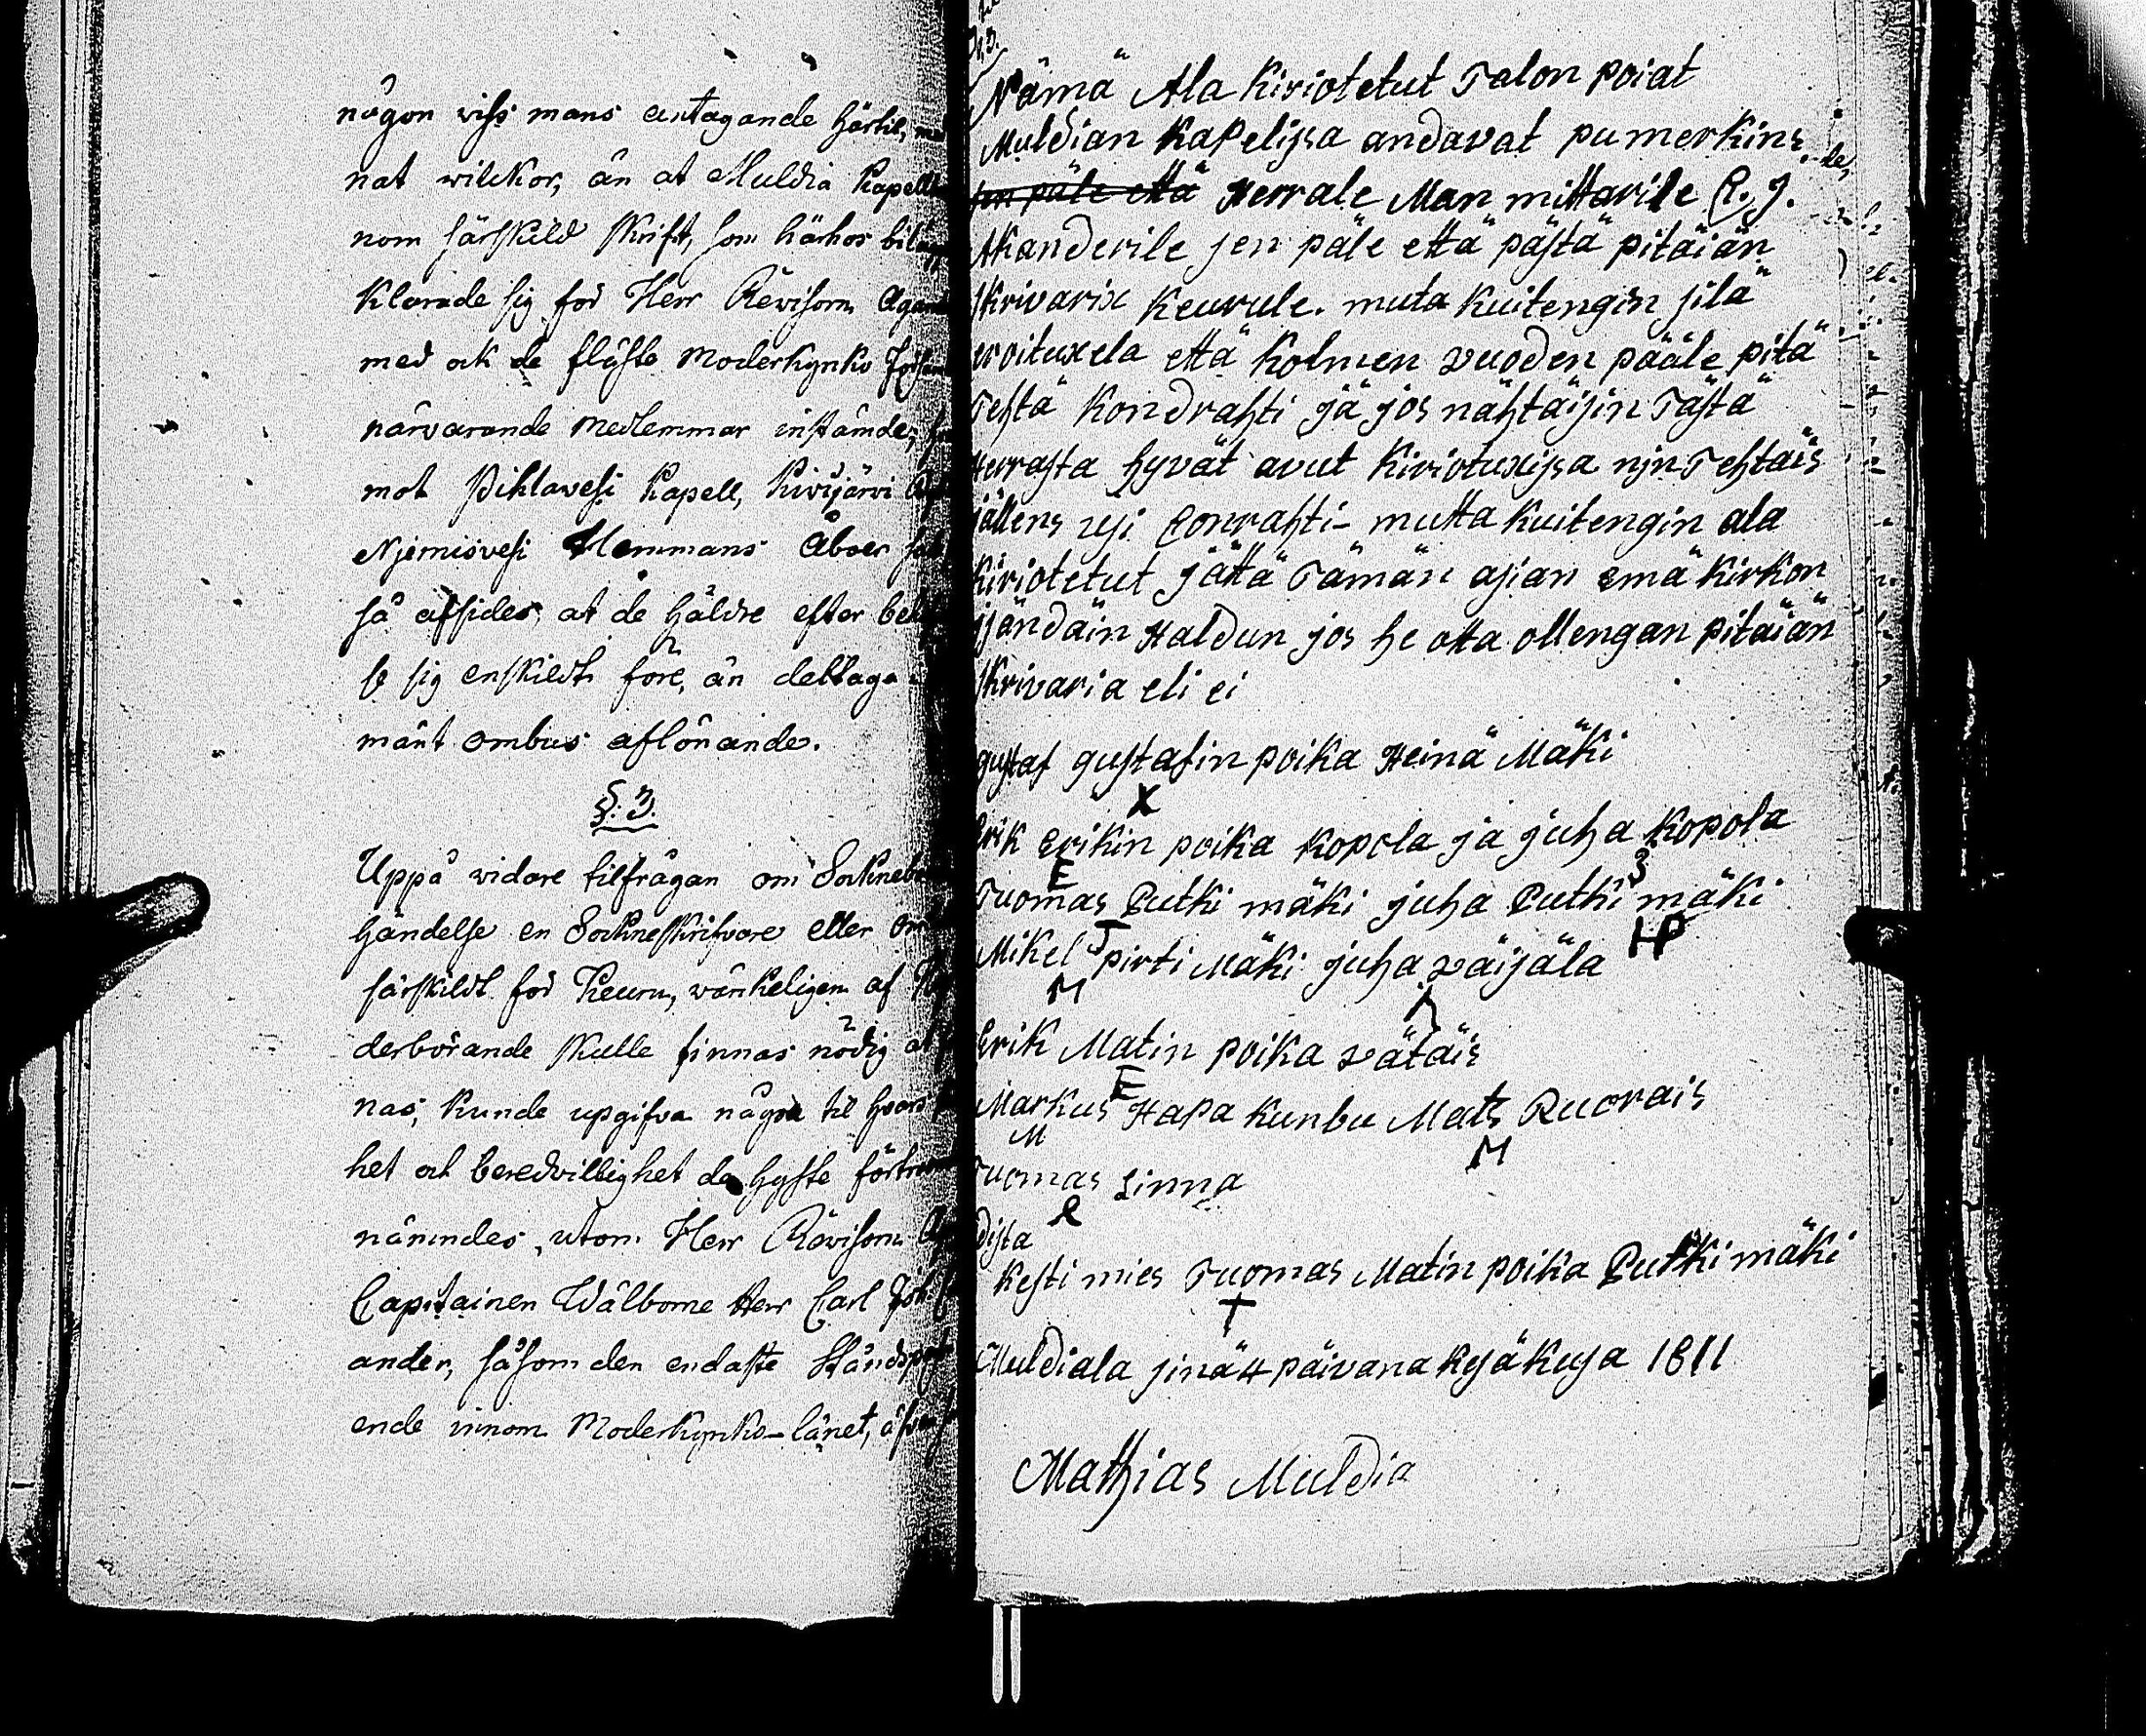 någon wiss mans antagande härtil,
nat wilckor, än at Muldia Kapell
nom särskild skrift, som härhos
klarade sig för Herr Revisorn
med ock de fläste moderkyrko
närvarande medlemmar instämde,
mot Pihlavesi Kapell, Kivijärvi
Njemisvesi Hemmans Åboer
så afsides, at de häldre efter
se sig enskiedt före, än deltaga
mänt ombuds aflönande.
§. 3.
Uppå widare tilfrågan om
händelse en Sockneskrifvare eller
särskildt för Keuru, wärkeligen af
derbörande skulle finnas nödig
nas, kunde upgifva några til hvars
het och beredvillighet de hyste
nämndes, utom Herr Revisorn
Capitainen Wälborne Herr Carl
ander, såsom den endaste
ende innom Moderkyrko-länet,
Nämä Ala Kiriotetut Talon poiat
Muldian Kapelissa andavat pumerkins
sen päle että Herrale Man mittarile C. J.
Akanderile sen päle että pästä pitäiän
skrivarix Keurule. muta Kuitengin silä
eroituxela että Kolmen vuoden pääle pitä
Tehtä Kondrahti jä jos nähtäisin Tästä
Herrasta hyvät avut Kiriotuxissa nin Tehtäis
jällens usi Conrahti - mutta Kuitengin ala
Kiriotetut jättä Tämän asian emä Kirkon
isändäin Haldun jos he otta ollengan pitäiän
skrivaria eli ei
gustaf gustafin poika Heinä Mäki
X
Erik Erikin poika Kopola ja juha Kopola
E
Tuomas Putki mäki juha Putki mäki
T HP
Mikel pirti Mäki juha Väijälä
M
Erik Matin poika Vätäis
E
Markus Hapa Kunbu Mats Ruorais
M M
Tuomas Linna
Kesti mies Tuomas Matin poika Putki mäki
Muldiala sinä 4 päivana Kesäkusa 1811
Mathias Muldia